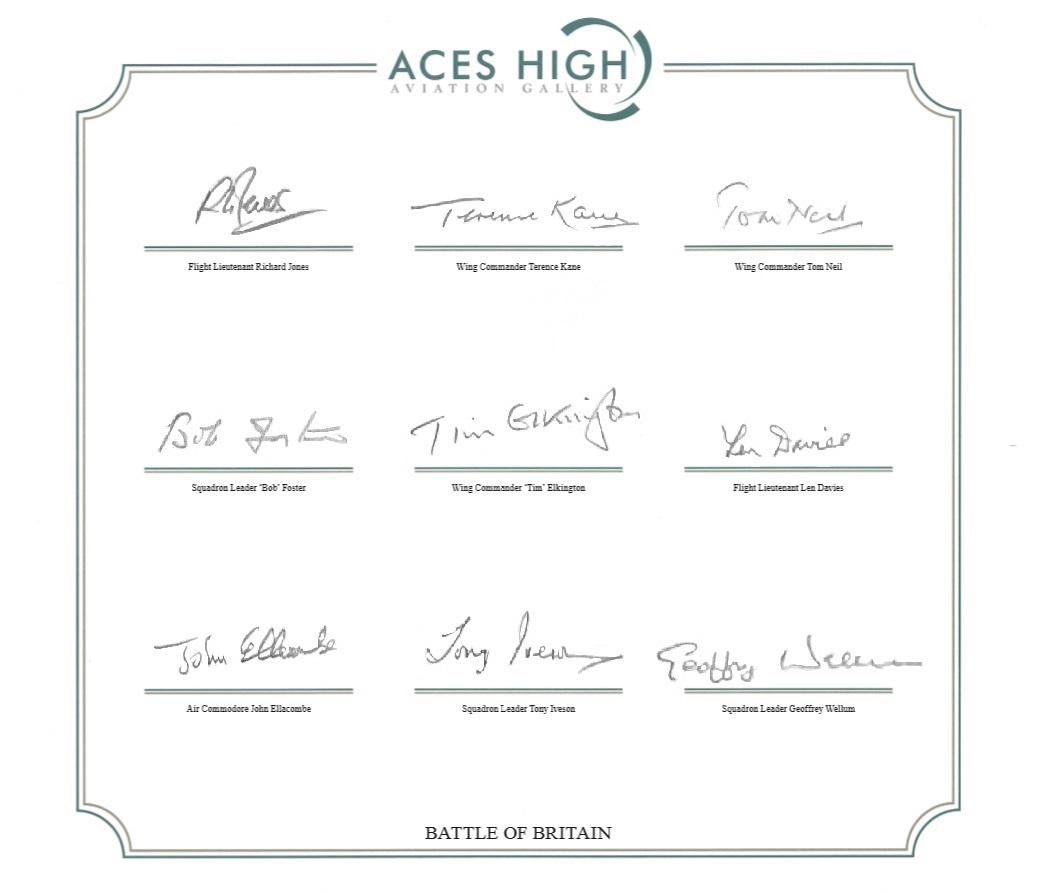 ACES HIGH
AVIATION GALLERY
R L Jones
Terence Kane
Tom Neil
Flight Lieutenant Richard Jones
Wing Commander Terence Kane
Wing Commander Tom Neil
Bob Foster
Tim Elkington
Len Davies
Squadron Leader 'Bob' Foster
Wing Commander 'Tim' Elkington
Flight Lieutenant Len Davies
John Ellacombe
Tony Iveson
Geoffrey Wellum
Air Commodore John Ellacombe
Squadron Leader Tony Iveson
Squadron Leader Geoffrey Wellum
BATTLE OF BRITAIN